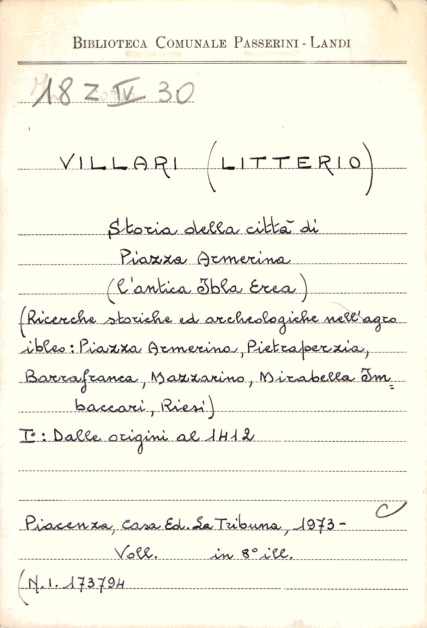 BIBLIOTECA COMUNALE PASSERINI - LANDI
18 Z IV 30
VILLARI (LITTERIO)
Storia della città di
Piazza Armerina
(l'antica Ibla Erea)
(Ricerche storiche ed archeologiche nell'agro
ibleo: Piazza Armerina, Pietraperzia,
Barrafranca, Mazzarino, Mirabella Im=
baccari, Riesi)
I°: Dalle origini al 1412
Piacenza, Casa Ed. La Tribuna, 1973-
Voll. in 8° ill.
(N.I. 173794